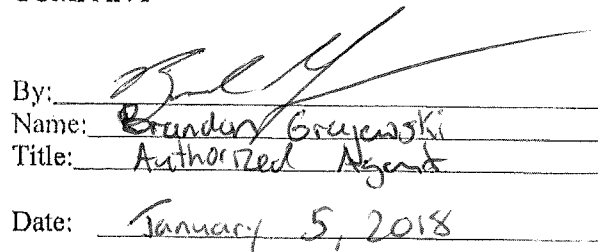 By:
Name: Brandon Grajewski
Title: Authorized Agent
Date: January 5, 2018